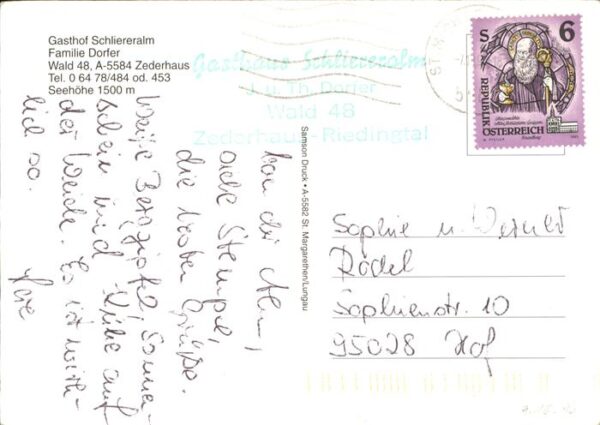 Gasthof Schliereralm
Familie Dorfer
Wald 48, A-5584 Zederhaus
Tel. 0 64 78/484 od. 453
Seehöhe 1500 m
Gasthaus Schliereralm
J. u. Th. Dorfer
Wald 48
Zederhaus-Riedingtal
S 6
REPUBLIK
ÖSTERREICH
Samson Druck • A-5582 St. Margarethen/Lungau
von der Alm,
siehe Stempel,
die besten Grüße.
Weiße Berggipfel, Sonnen-
schein und Kühe auf
der Weide. Es ist wirk-
lich so.
Sophie u. Werner
Rödel
Sophienstr. 10
95028 Hof